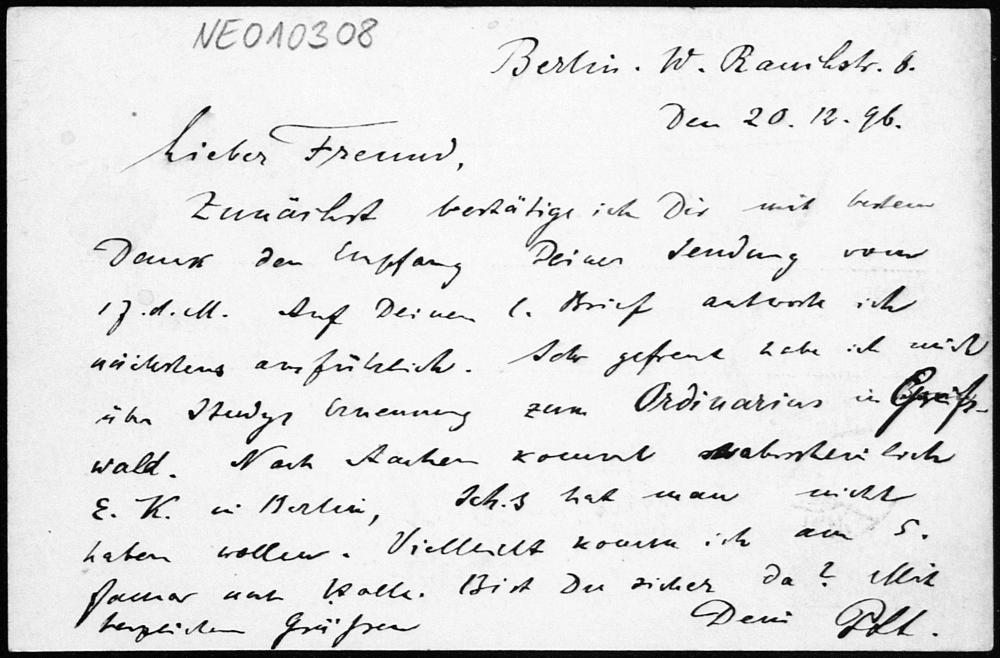 NE010308
Berlin. W. Rauchstr. 6.
Den 20. 12. 96.
Lieber Freund,
Zunächst bestätige ich Dir mit bestem
Dank den Empfang Deiner Sendung vom
17. d. M. Auf Deinen l. Brief antworte ich
nächstens ausführlich. Sehr gefreut habe ich mich
über Studys Ernennung zum Ordinarius in Greifs-
wald. Nach Aachen kommt wahrscheinlich
E. K. in Berlin, Sch.s hat man nicht
haben wollen. Vielleicht komme ich am 5.
Januar nach Halle. Bist Du sicher da? Mit
herzlichen Grüßen Dein